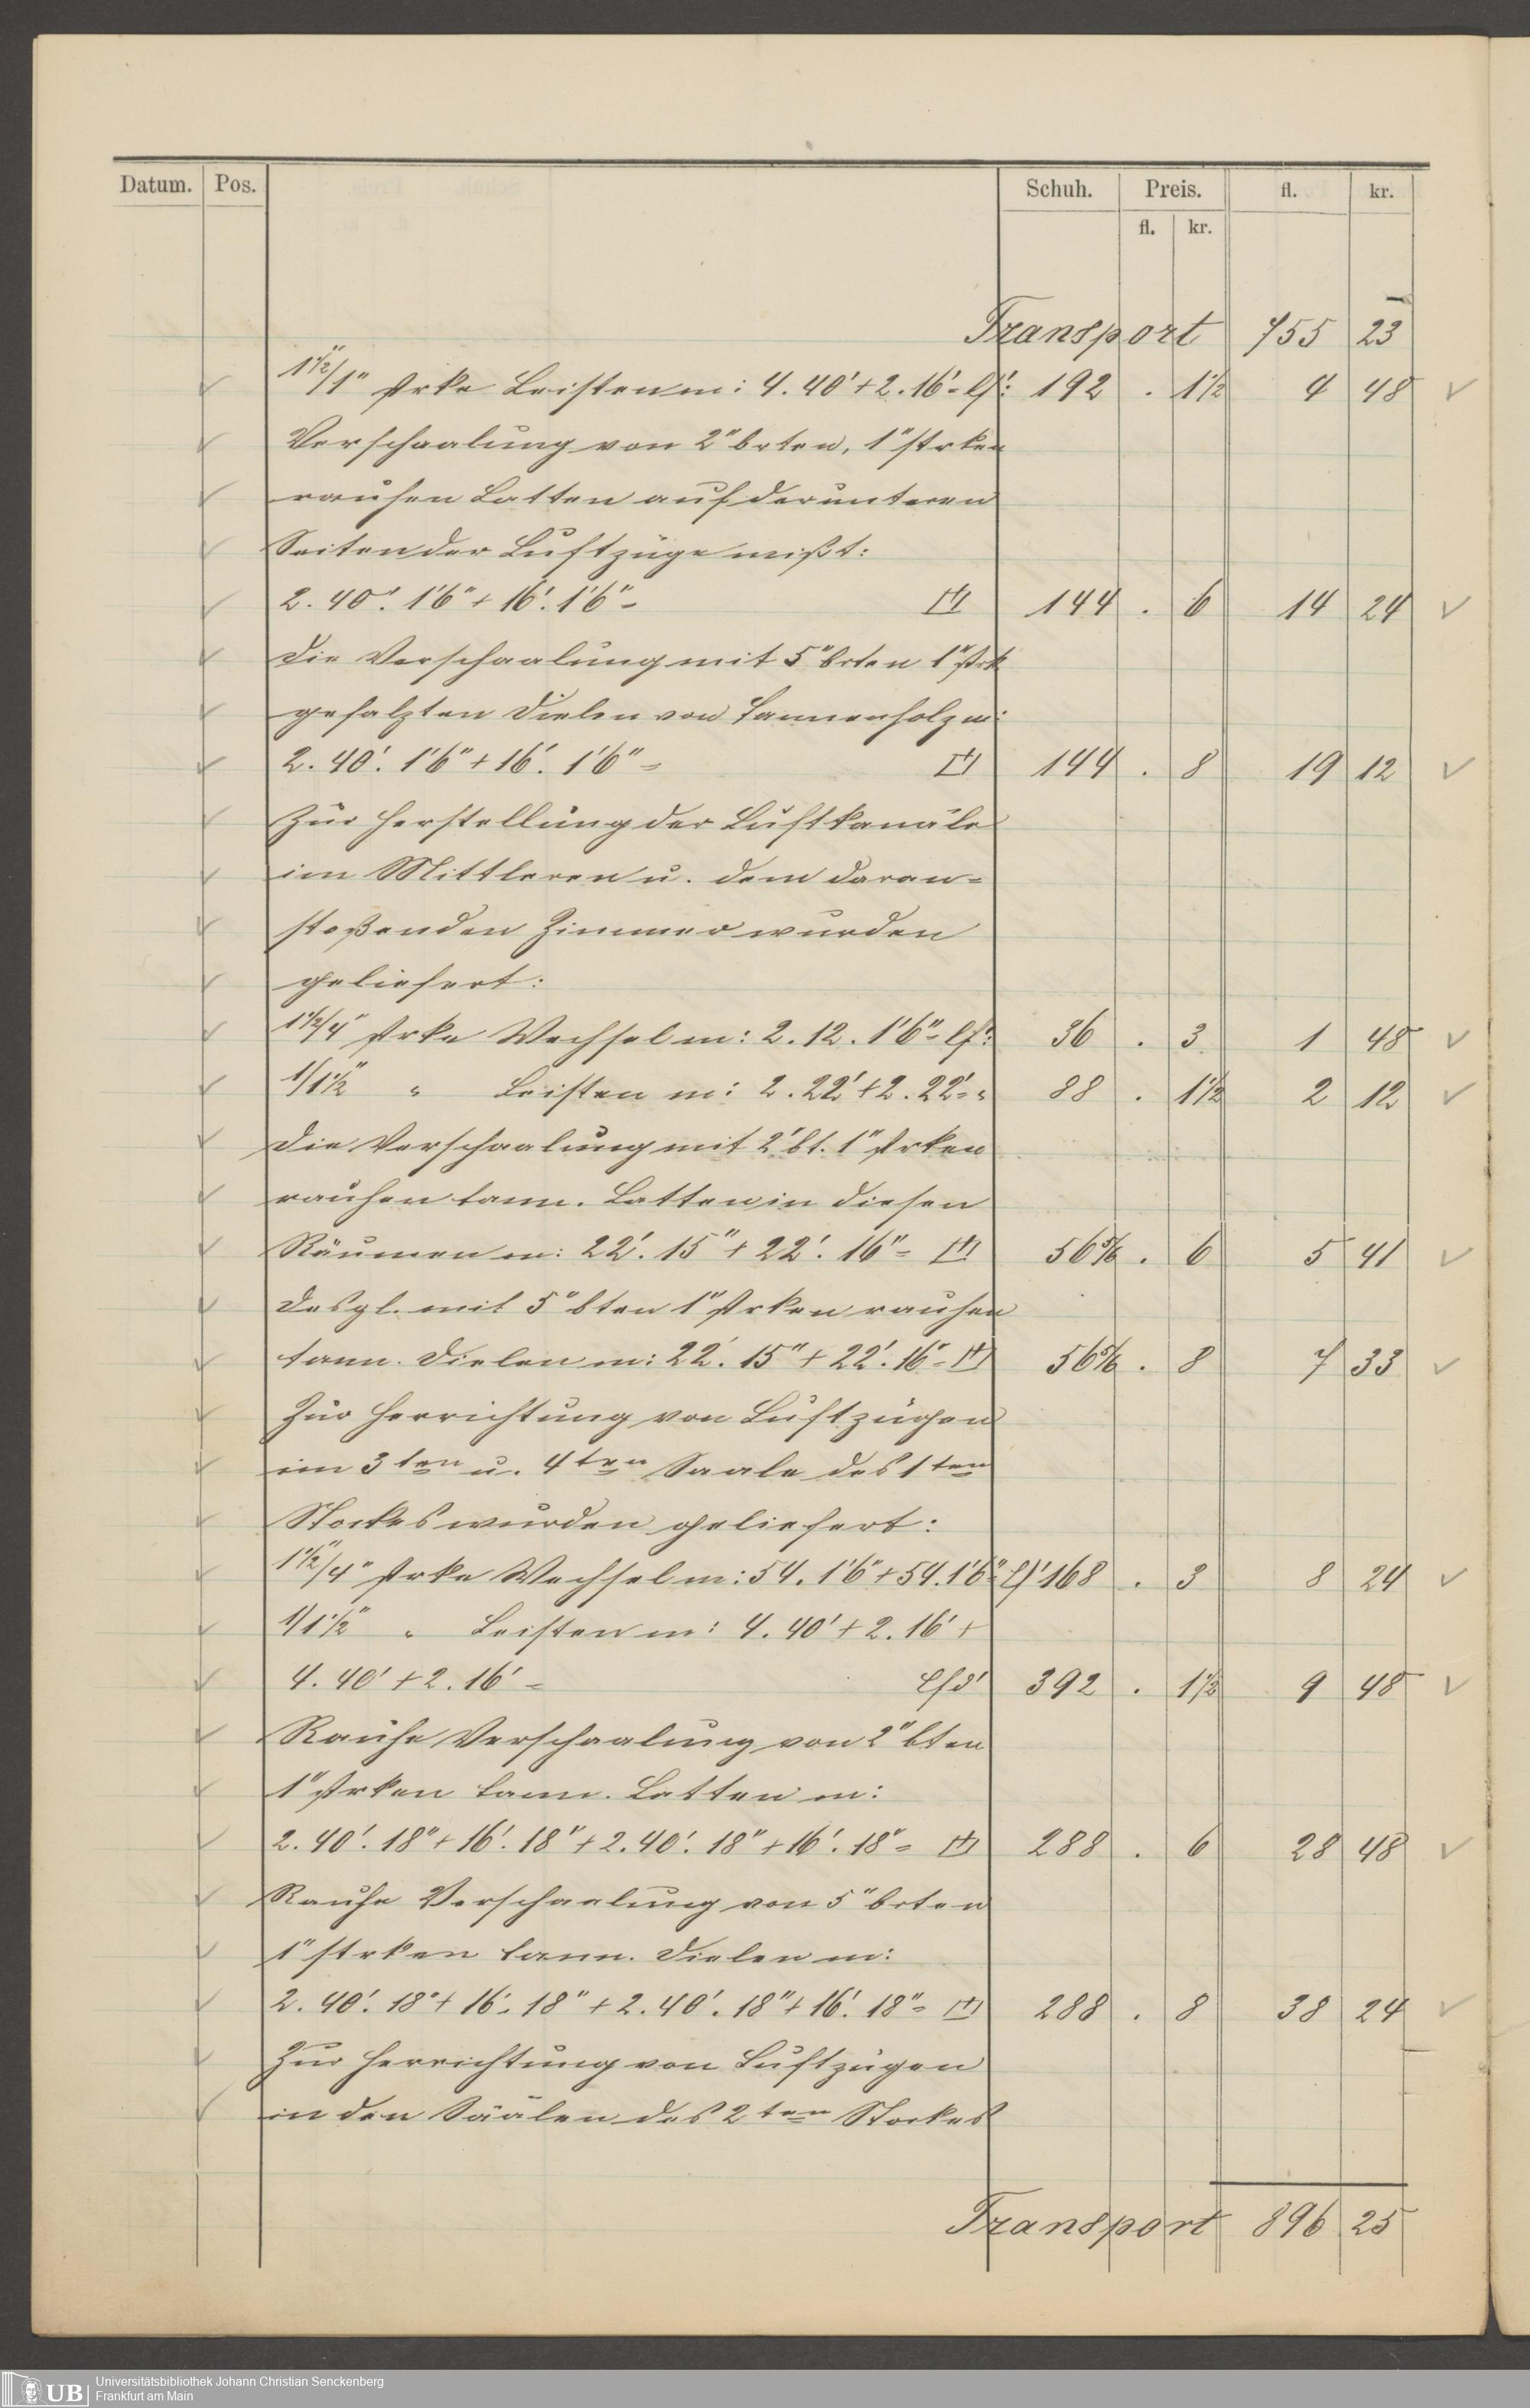 Datum. Pos. Schuh. Preis. fl. kr.
fl. kr.
Transport 755 23
1½"/1" strke Leisten m: 4.40'+2.16'= lf': 192 . 1½ 4 48
Verschaalung von 2" brten, 1" strken
rauhen Latten auf der unteren
Seiten der Luftzüge mißt:
2.40'.1'6"+16'.1'6"= 144 . 6 14 24
Die Verschaalung mit 5" brten 1" strk
gefalzten Dielen von Tannenholz m:
2.40'.1'6"+16'.1'6"= 144 . 8 19 12
Zur Herstellung der Luftkanäle
im Mittleren u. dem daran=
stoßenden Zimmer wurden
geliefert:
1½/4" strke Wechsel m: 2.12.1'6"= lf': 36 . 3 1 48
1/1½" " Leisten m: 2.22'+2.22'= " 88 . 1½ 2 12
Die Verschaalung mit 2" bt. 1" strken
rauhen tann. Latten in diesen
Räumen m: 22'.15"+22'.16"= 56⅚ . 6 5 41
Desgl. mit 5" bten 1" strken rauhen
tann. Dielen m: 22'.15"+22'.16"= 56⅚ . 8 7 33
Zur Herrichtung von Luftzügen
im 3ten u. 4ten Saale des 1ten
Stockes wurden geliefert:
1½"/4" strke Wechsel m: 54.1'6"+54.1'6"= lf' 168 . 3 8 24
1/1½" " Leisten m: 4.40'+2.16'+
4.40'+2.16'= lfd' 392 . 1½ 9 48
Rauhe Verschaalung von 2" bten
1" strken tann. Latten m:
2.40'.18"+16'.18"+2.40'.18"+16'.18"= 288 . 6 28 48
Rauhe Verschaalung von 5" brten
1" strken tann. Dielen m:
2.40'.18"+16'.18"+2.40'.18"+16'.18"= 288 . 8 38 24
Zur Herrichtung von Luftzügen
in den Säälen des 2ten Stockes
Transport 896 25
UB Universitätsbibliothek Johann Christian Senckenberg
Frankfurt am Main